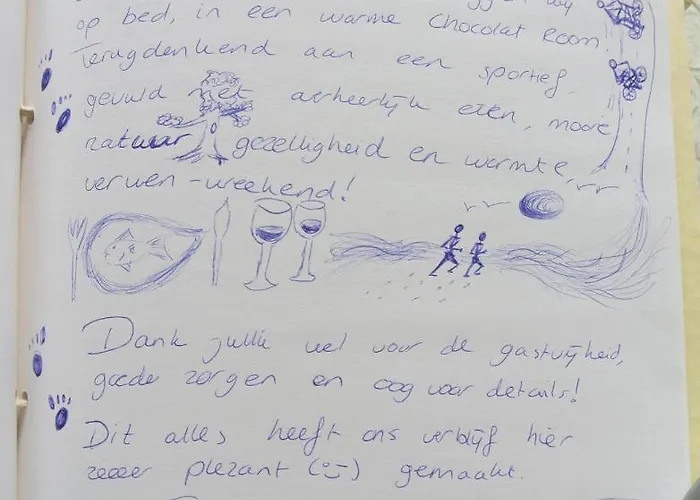 op bed, in een warme Chocolat Room.
Terugdenkend aan een sportief,
gevuld met oerheerlijk eten, mooie
natuur, gezelligheid en warmte,
verwen-weekend!
Dank jullie wel voor de gastvrijheid,
goede zorgen en oog voor details!
Dit alles heeft ons verblijf hier
zeeer plezant (:-) gemaakt.